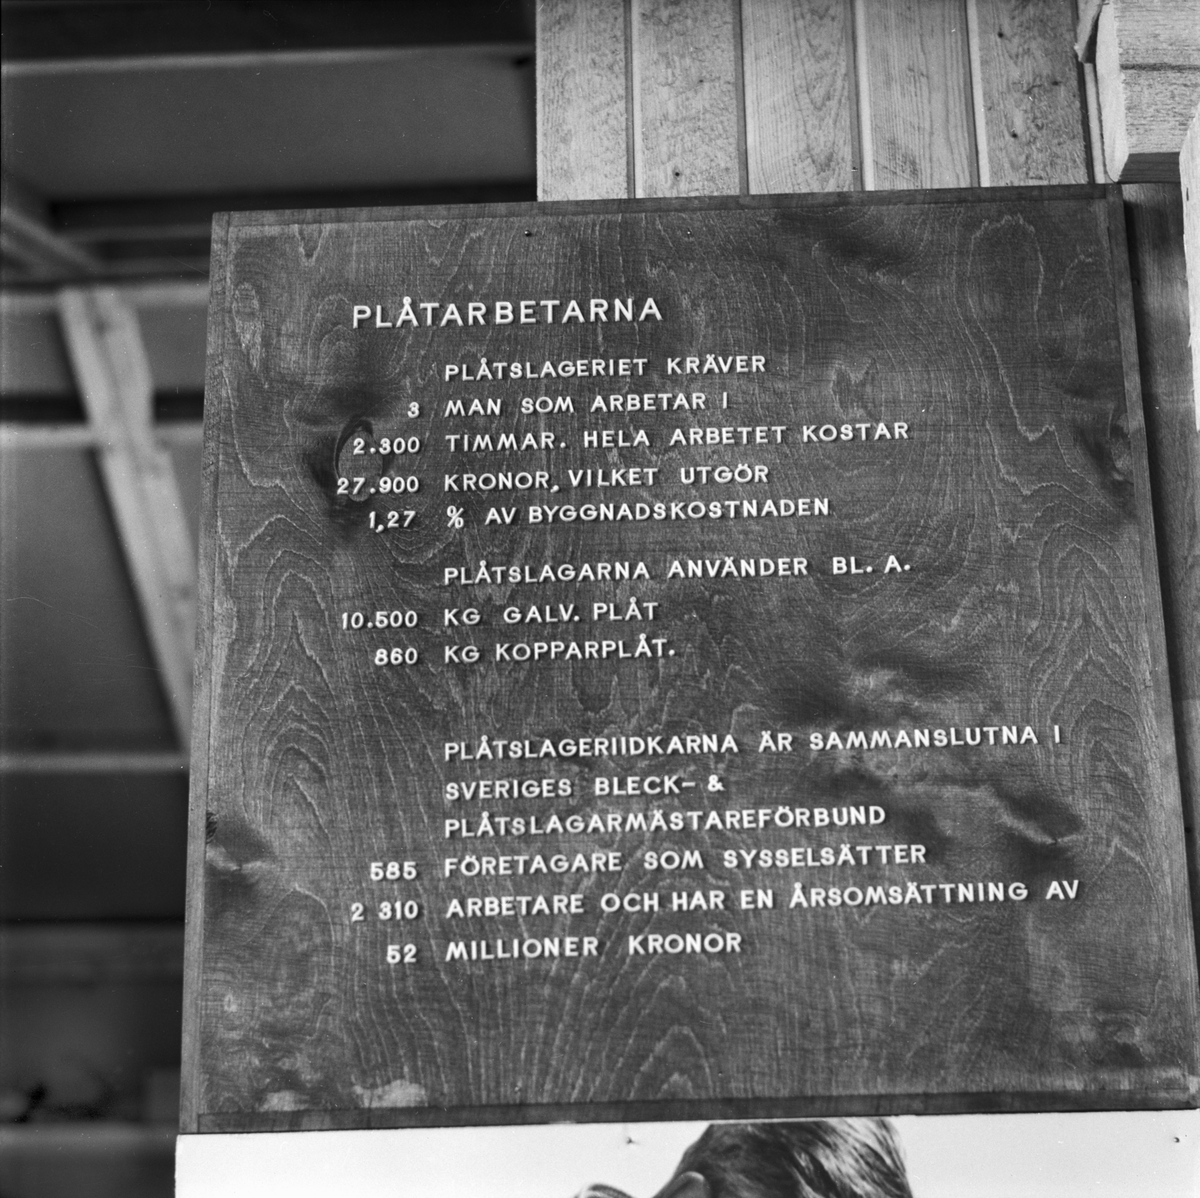 PLÅTARBETARNA
PLÅTSLAGERIET KRÄVER
3 MAN SOM ARBETAR I
2.300 TIMMAR. HELA ARBETET KOSTAR
27.900 KRONOR, VILKET UTGÖR
1,27 % AV BYGGNADSKOSTNADEN
PLÅTSLAGARNA ANVÄNDER BL. A.
10.500 KG GALV. PLÅT
860 KG KOPPARPLÅT.
PLÅTSLAGERIIDKARNA ÄR SAMMANSLUTNA I
SVERIGES BLECK- &
PLÅTSLAGARMÄSTAREFÖRBUND
585 FÖRETAGARE SOM SYSSELSÄTTER
2 310 ARBETARE OCH HAR EN ÅRSOMSÄTTNING AV
52 MILLIONER KRONOR